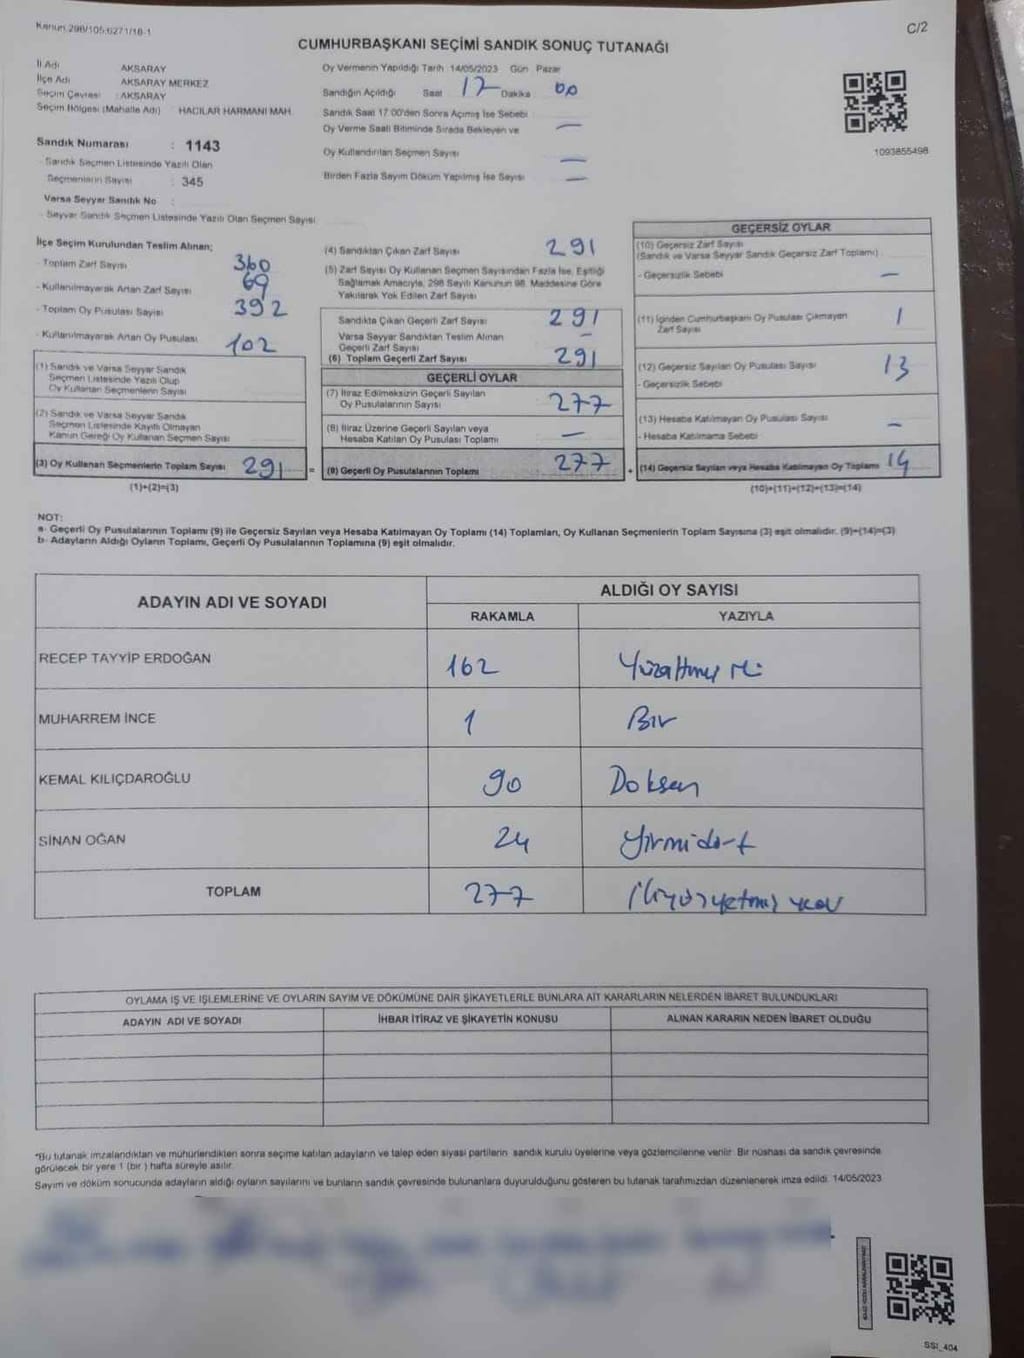 Kanun 298/105;6271/18-1
C/2
CUMHURBAŞKANI SEÇİMİ SANDIK SONUÇ TUTANAĞI
İl Adı AKSARAY
İlçe Adı AKSARAY MERKEZ
Seçim Çevresi : AKSARAY
Seçim Bölgesi (Mahalle Adı) : HACILAR HARMANI MAH.
Sandık Numarası : 1143
- Sandık Seçmen Listesinde Yazılı Olan
Seçmenlerin Sayısı : 345
Varsa Seyyar Sandık No :
- Seyyar Sandık Seçmen Listesinde Yazılı Olan Seçmen Sayısı
Oy Vermenin Yapıldığı Tarih 14/05/2023 Gün Pazar
Sandığın Açıldığı Saat 17 Dakika 00
Sandık Saat 17.00'den Sonra Açılmış İse Sebebi
Oy Verme Saati Bitiminde Sırada Bekleyen ve —
Oy Kullandırılan Seçmen Sayısı —
Birden Fazla Sayım Döküm Yapılmış İse Sayısı —
1093855498
İlçe Seçim Kurulundan Teslim Alınan;
- Toplam Zarf Sayısı 360
- Kullanılmayarak Artan Zarf Sayısı 69
- Toplam Oy Pusulası Sayısı 392
- Kullanılmayarak Artan Oy Pusulası 102
(1) Sandık ve Varsa Seyyar Sandık
Seçmen Listesinde Yazılı Olup
Oy Kullanan Seçmenlerin Sayısı
(2) Sandık ve Varsa Seyyar Sandık
Seçmen Listesinde Kayıtlı Olmayan
Kanun Gereği Oy Kullanan Seçmen Sayısı
(3) Oy Kullanan Seçmenlerin Toplam Sayısı 291 =
(1)+(2)=(3)
(4) Sandıktan Çıkan Zarf Sayısı 291
(5) Zarf Sayısı Oy Kullanan Seçmen Sayısından Fazla İse, Eşitliği
Sağlamak Amacıyla, 298 Sayılı Kanunun 98. Maddesine Göre
Yakılarak Yok Edilen Zarf Sayısı
Sandıkta Çıkan Geçerli Zarf Sayısı 291
Varsa Seyyar Sandıktan Teslim Alınan —
Geçerli Zarf Sayısı
(6) Toplam Geçerli Zarf Sayısı 291
GEÇERLİ OYLAR
(7) İtiraz Edilmeksizin Geçerli Sayılan
Oy Pusulalarının Sayısı 277
(8) İtiraz Üzerine Geçerli Sayılan veya
Hesaba Katılan Oy Pusulası Toplamı —
(9) Geçerli Oy Pusulalarının Toplamı 277 +
GEÇERSİZ OYLAR
(10) Geçersiz Zarf Sayısı
(Sandık ve Varsa Seyyar Sandık Geçersiz Zarf Toplamı)
- Geçersizlik Sebebi —
(11) İçinden Cumhurbaşkanı Oy Pusulası Çıkmayan 1
Zarf Sayısı
(12) Geçersiz Sayılan Oy Pusulası Sayısı 13
- Geçersizlik Sebebi
(13) Hesaba Katılmayan Oy Pusulası Sayısı —
- Hesaba Katılmama Sebebi
(14) Geçersiz Sayılan veya Hesaba Katılmayan Oy Toplamı 14
(10)+(11)+(12)+(13)=(14)
NOT:
a- Geçerli Oy Pusulalarının Toplamı (9) ile Geçersiz Sayılan veya Hesaba Katılmayan Oy Toplamı (14) Toplamları, Oy Kullanan Seçmenlerin Toplam Sayısına (3) eşit olmalıdır. (9)+(14)=(3)
b- Adayların Aldığı Oyların Toplamı, Geçerli Oy Pusulalarının Toplamına (9) eşit olmalıdır.
ADAYIN ADI VE SOYADI ALDIĞI OY SAYISI
RAKAMLA YAZIYLA
RECEP TAYYİP ERDOĞAN 162 Yüzaltmış iki
MUHARREM İNCE 1 Bir
KEMAL KILIÇDAROĞLU 90 Doksan
SİNAN OĞAN 24 Yirmidört
TOPLAM 277 ikiyüzyetmiş yedi
OYLAMA İŞ VE İŞLEMLERİNE VE OYLARIN SAYIM VE DÖKÜMÜNE DAİR ŞİKAYETLERLE BUNLARA AİT KARARLARIN NELERDEN İBARET BULUNDUKLARI
ADAYIN ADI VE SOYADI İHBAR İTİRAZ VE ŞİKAYETİN KONUSU ALINAN KARARIN NEDEN İBARET OLDUĞU
*Bu tutanak imzalandıktan ve mühürlendikten sonra seçime katılan adayların ve talep eden siyasi partilerin sandık kurulu üyelerine veya gözlemcilerine verilir. Bir nüshası da sandık çevresinde
görülecek bir yere 1 (bir ) hafta süreyle asılır.
Sayım ve döküm sonucunda adayların aldığı oyların sayılarını ve bunların sandık çevresinde bulunanlara duyurulduğunu gösteren bu tutanak tarafımızdan düzenlenerek imza edildi. 14/05/2023
SSI_404